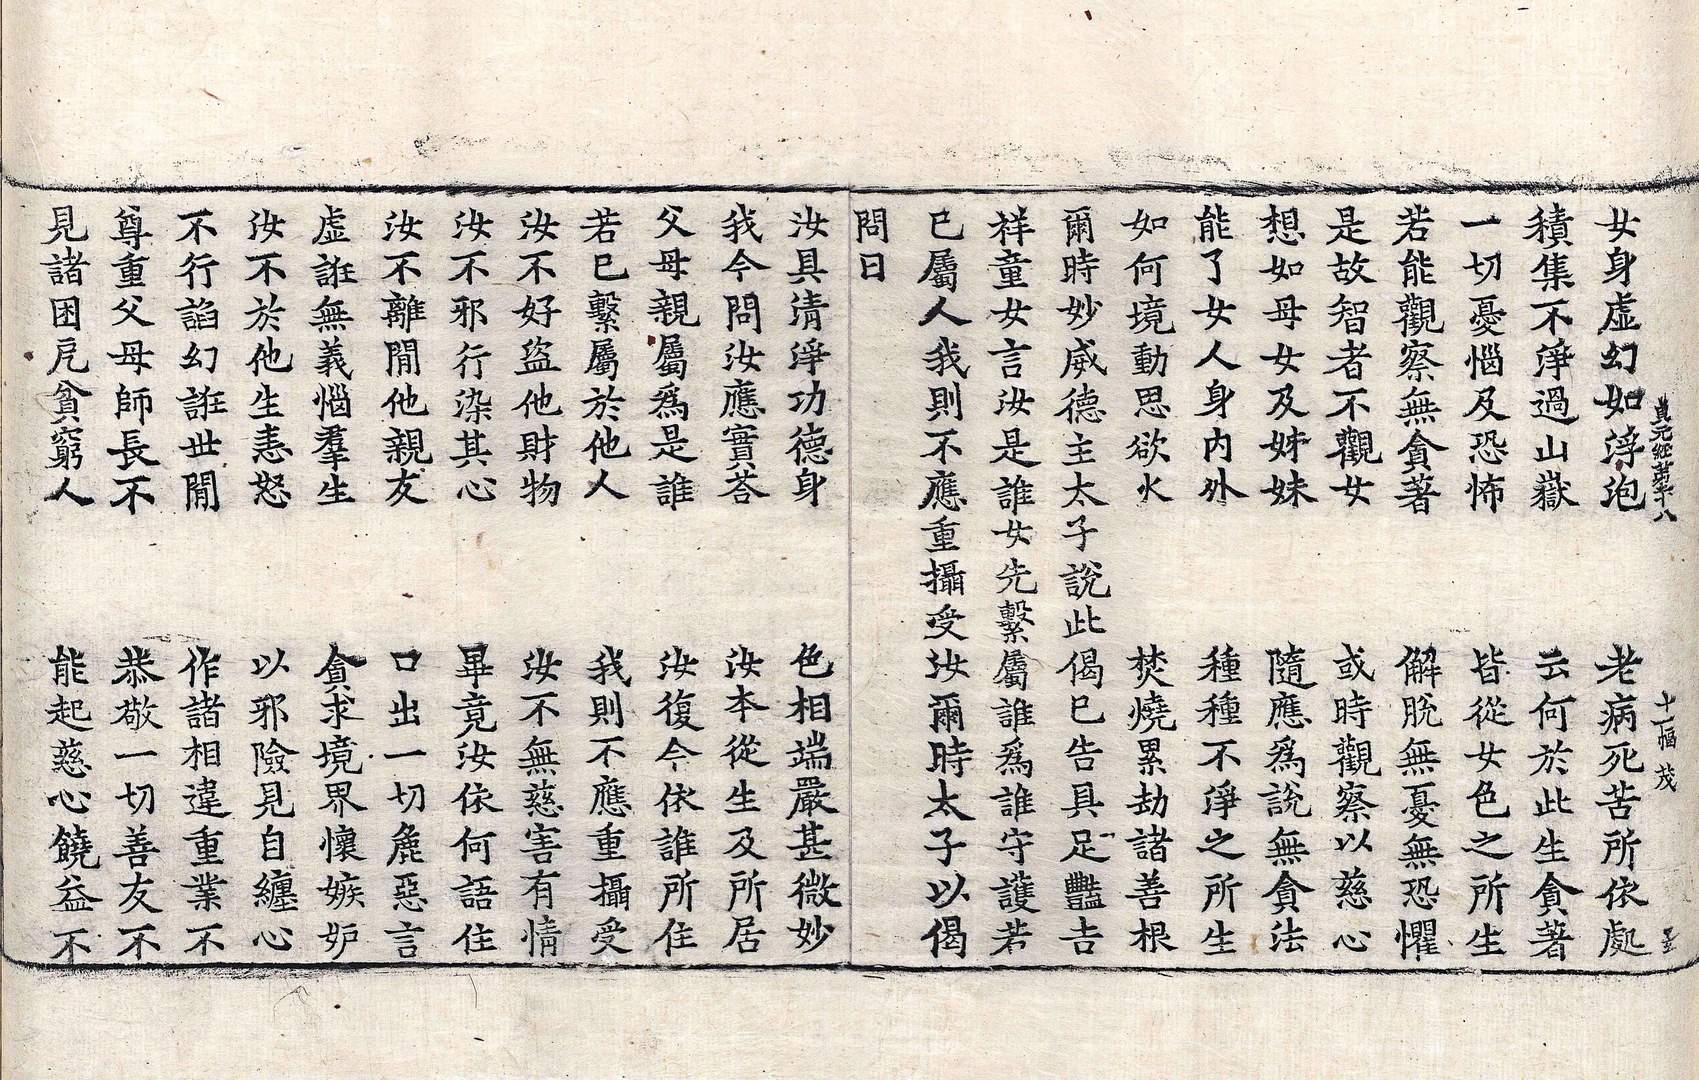 貞元經第二十八 十一幅 茂
女身虛幻如浮泡 老病死苦所依處
積集不淨過山嶽 云何於此生貪著
一切憂惱及恐怖 皆從女色之所生
若能觀察無貪著 解脫無憂無恐懼
是故智者不觀女 或時觀察以慈心
想如母女及姊妹 隨應為說無貪法
能了女人身內外 種種不淨之所生
如何境動思欲火 焚燒累劫諸善根
爾時妙威德主太子說此偈已告具足豔吉
祥童女言汝是誰女先繫屬誰為誰守護若
已屬人我則不應重攝受汝爾時太子以偈
問曰
汝具清淨功德身 色相端嚴甚微妙
我今問汝應實荅 汝本從生及所居
父母親屬為是誰 汝復今依誰所住
若已繫屬於他人 我則不應重攝受
汝不好盜他財物 汝不無慈害有情
汝不邪行染其心 畢竟汝依何語住
汝不離間他親友 口出一切麁惡言
虛誑無義惱羣生 貪求境界懷嫉妒
汝不於他生恚怒 以邪險見自纏心
不行諂幻誑世間 作諸相違重業不
尊重父母師長不 恭敬一切善友不
見諸困戹貧窮人 能起慈心饒益不